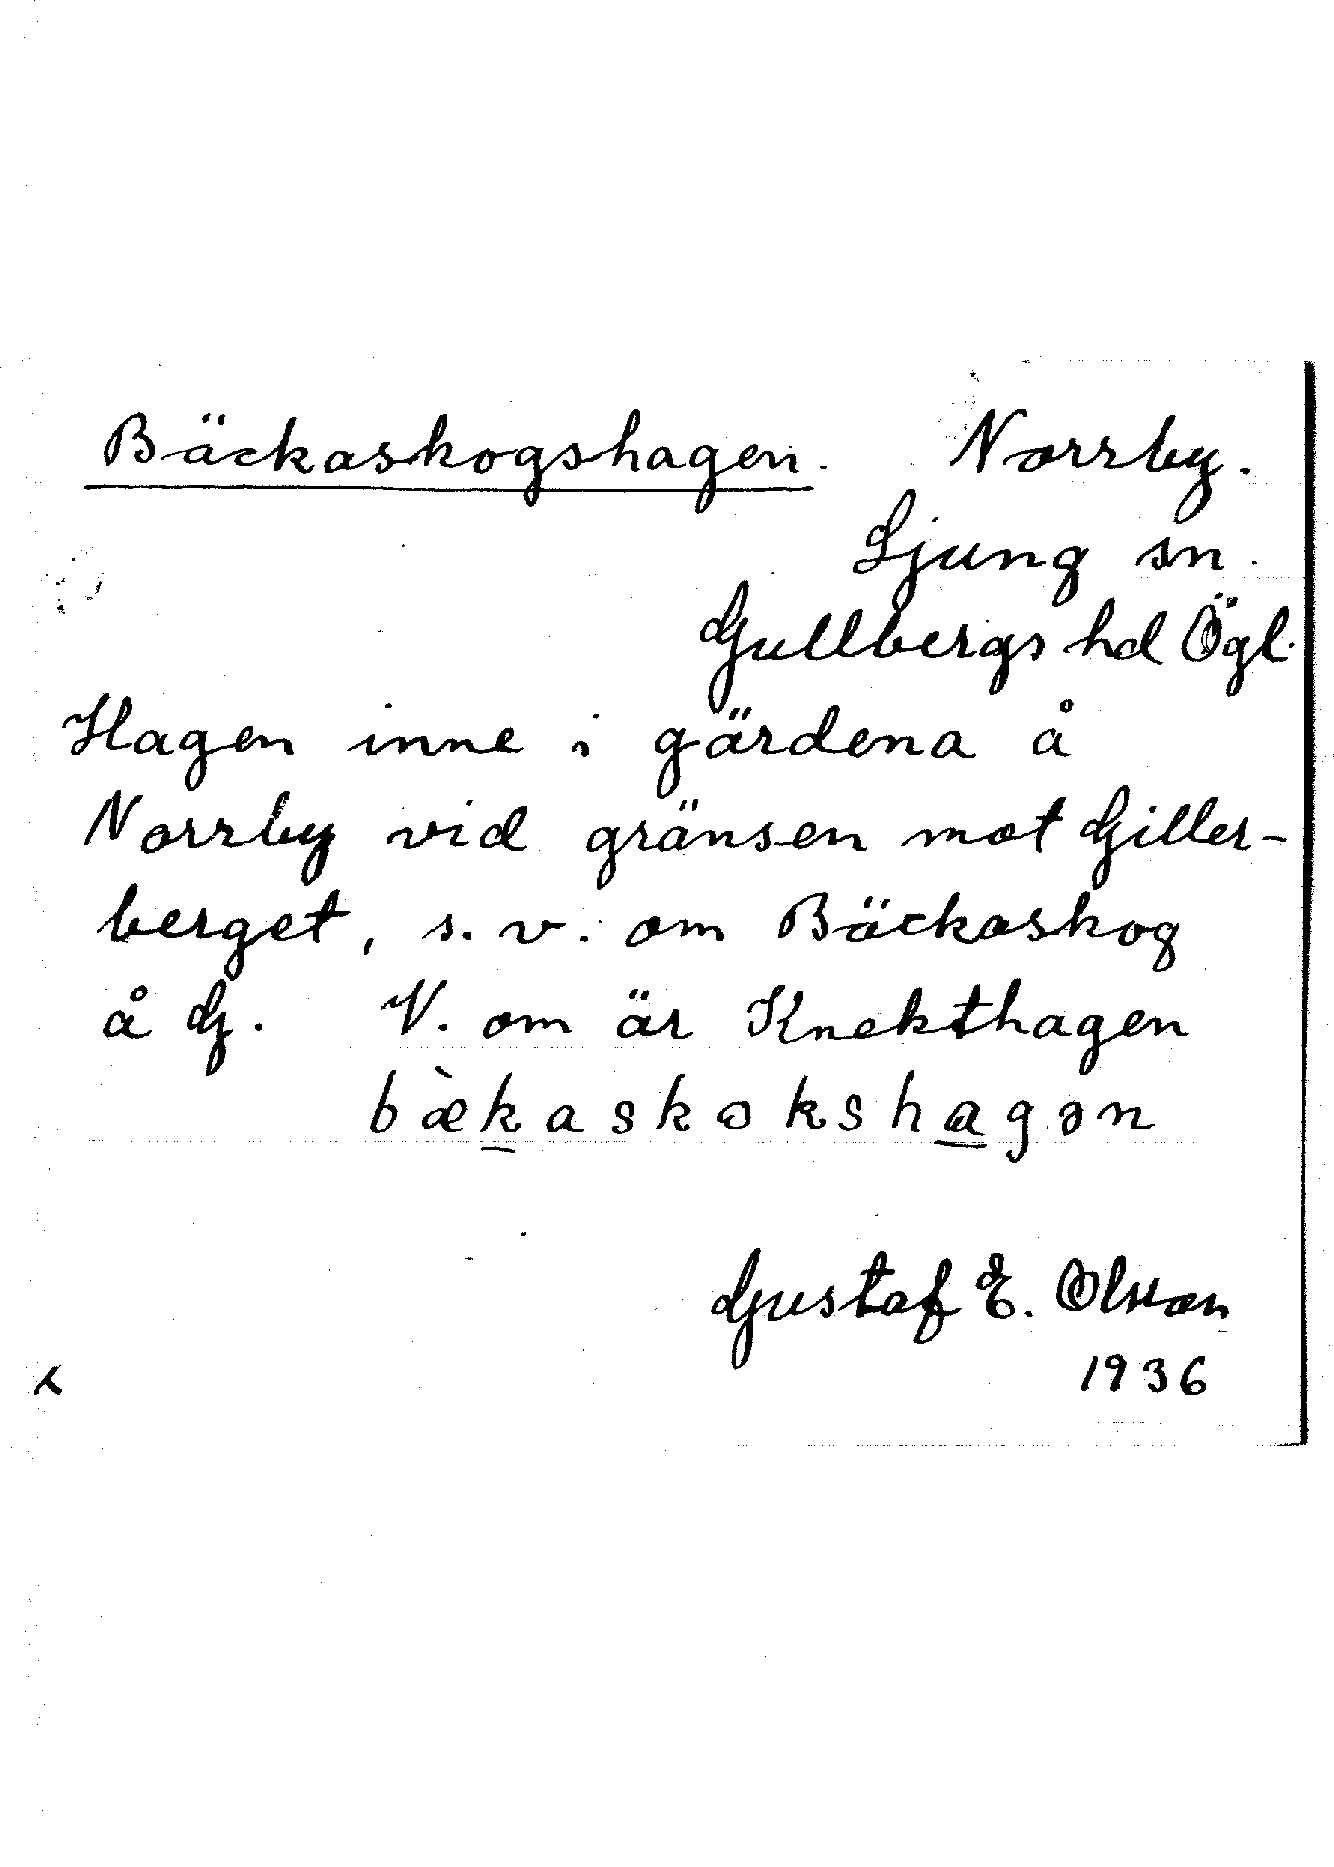 Bäckaskogshagen. Norrby.
Ljung sn.
Gullbergs hd Ögl.
Hagen inne i gärdena å
Norrby vid gränsen mot Giller-
berget, s. v. om Bäckaskog
å G. V. om är Knekthagen
bæ̀k̲askoksha̲gən
Gustaf E. Olsson
1936